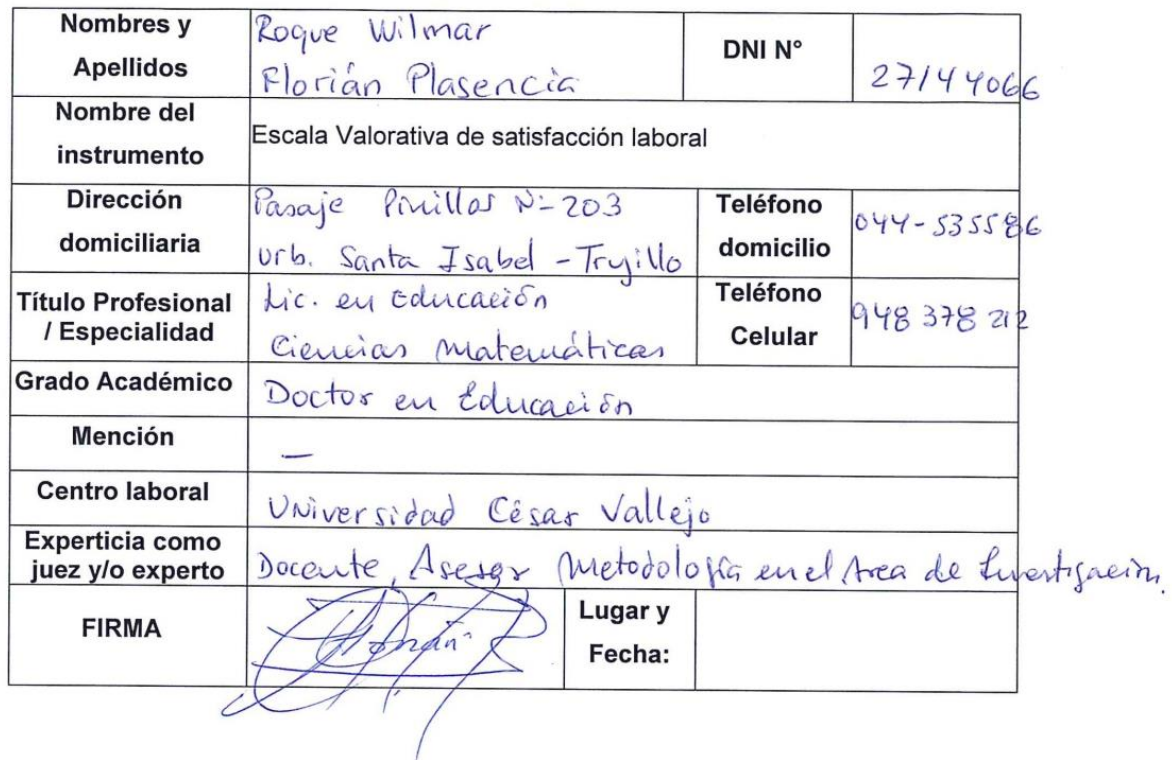 Nombres y Apellidos
Roque Wilmar
Florián Plasencia
DNI N°
27144066
Nombre del instrumento
Escala Valorativa de satisfacción laboral
Dirección domiciliaria
Pasaje Pinillos N=203
urb. Santa Isabel - Trujillo
Teléfono domicilio
044-535586
Título Profesional / Especialidad
Lic. en Educación
Ciencias Matemáticas
Teléfono Celular
948 378 212
Grado Académico
Doctor en Educación
Mención
—
Centro laboral
Universidad César Vallejo
Experticia como juez y/o experto
Docente, Asesor Metodología en el Area de Investigación.
FIRMA
Lugar y Fecha: